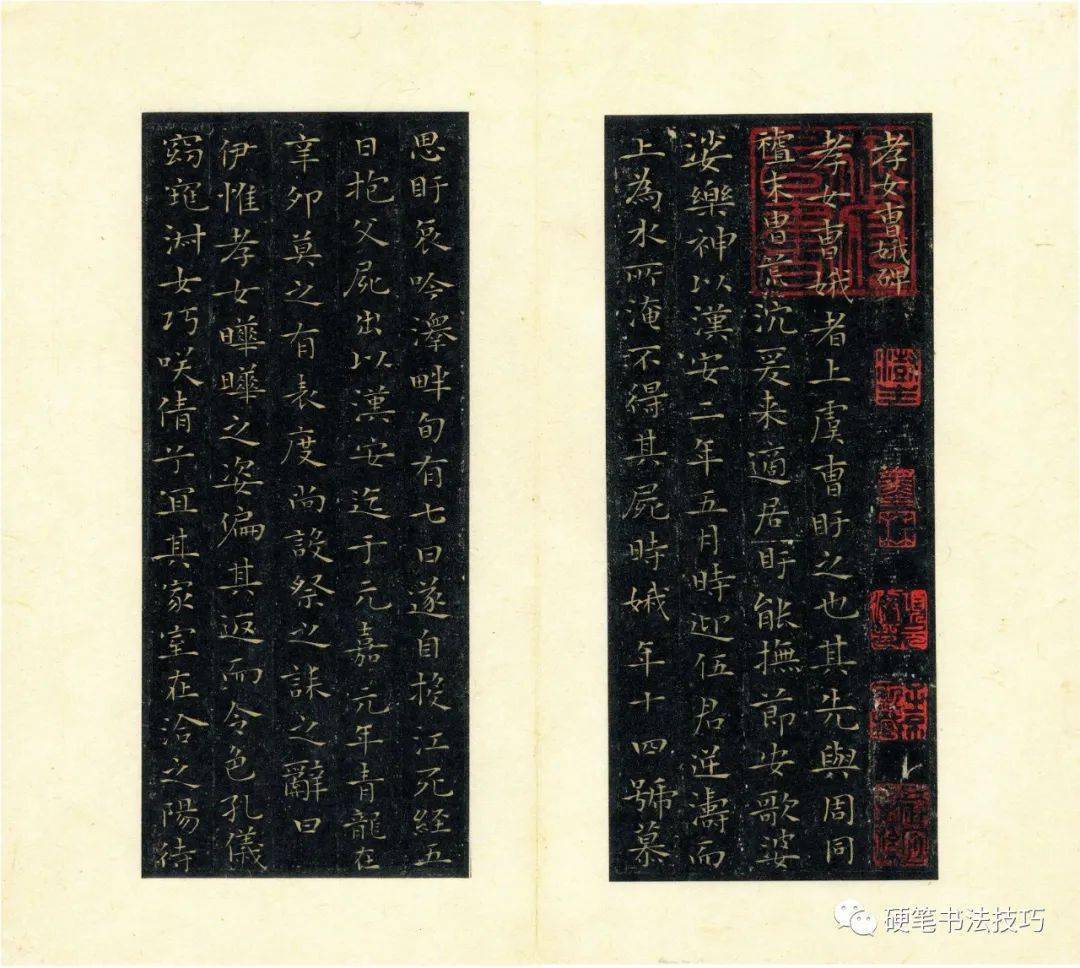 孝女曹娥碑
孝女曹娥者上虞曹盱之也其先與周同
末胄荒沉爰来適居盱能撫節安歌婆
娑樂神以漢安二年五月時迎伍君逆濤而
上為水所淹不得其屍時娥年十四號慕
思盱哀吟澤畔旬有七日遂自投江死經五
日抱父屍出以漢安迄于元嘉元年青龍在
辛卯莫之有表度尚設祭之誄之辭曰
伊惟孝女曄曄之姿偏其返而令色孔儀
窈窕淑女巧咲倩兮宜其家室在洽之陽待
硬笔书法技巧